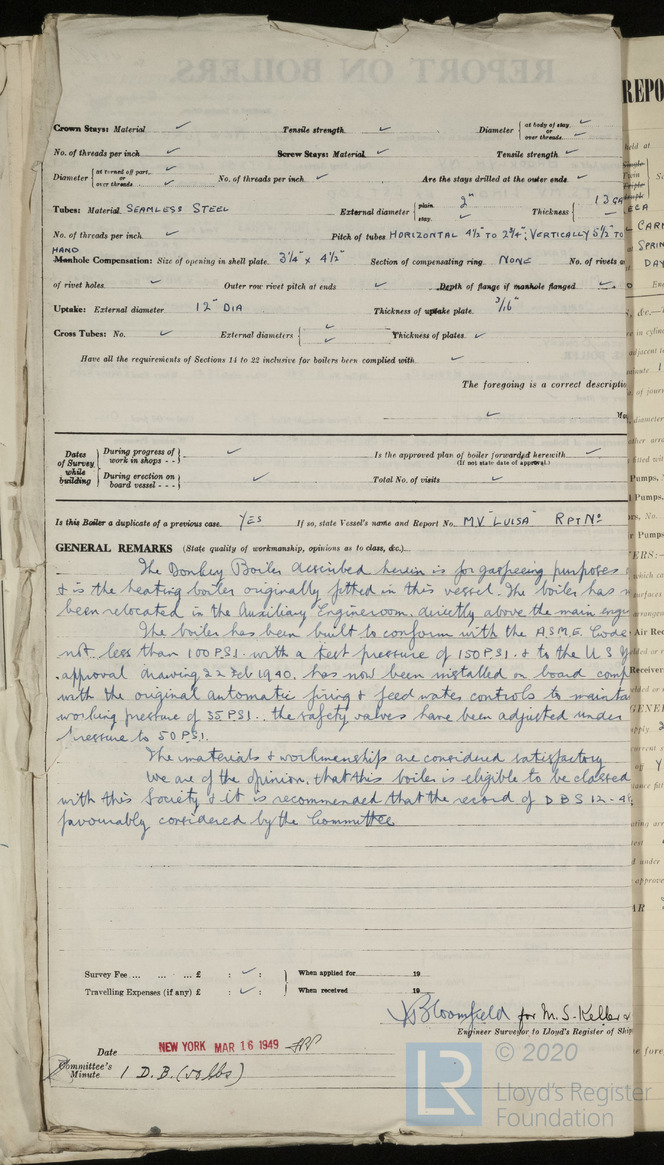 REPORT ON BOILERS.
Crown Stays: Material ✓ Tensile strength ✓ Diameter { at body of stay. ✓ or over threads. ✓
No. of threads per inch ✓ Screw Stays: Material ✓ Tensile strength ✓
Diameter { at turned off part. ✓ or over threads. ✓ No. of threads per inch. ✓ Are the stays drilled at the outer ends. ✓
Tubes: Material SEAMLESS STEEL External diameter { plain. 2" stay. ✓ Thickness { 13 GA ✓
No. of threads per inch. ✓ Pitch of tubes HORIZONTAL 4½" TO 2¾"; VERTICALLY 5½" TO
HAND
Manhole Compensation: Size of opening in shell plate 3¼" x 4½" Section of compensating ring NONE No. of rivets a
of rivet holes ✓ Outer row rivet pitch at ends ✓ Depth of flange if manhole flanged ✓
Uptake: External diameter 12" DIA Thickness of uptake plate 3/16"
Cross Tubes: No. ✓ External diameters { ✓ ✓ Thickness of plates ✓
Have all the requirements of Sections 14 to 22 inclusive for boilers been complied with ✓
The foregoing is a correct descriptio
✓
Dates of Survey while building { During progress of work in shops - - ✓ Is the approved plan of boiler forwarded herewith ✓
(If not state date of approval.)
During erection on board vessel - - - ✓ Total No. of visits ✓
Is this Boiler a duplicate of a previous case. YES If so, state Vessel's name and Report No. M.V. "LUISA" RPT No
GENERAL REMARKS (State quality of workmanship, opinions as to class, &c.)
The Donkey Boiler described herein is for gasfreeing purposes
& is the heating boiler originally fitted in this vessel. The boiler has
been relocated in the Auxiliary Engineroom, directly above the main engi
The boiler has been built to conform with the A.S.M.E. Code
not less than 100 PSI. with a test pressure of 150 PSI. & to the U S
approval drawing 22 Feb 1940, has now been installed on board comp
with the original automatic firing & feed water controls to mainta
working pressure of 35 PSI., the safety valves have been adjusted under
pressure to 50 PSI.
The materials & workmanship are considered satisfactory
We are of the opinion, that this boiler is eligible to be classed
with this Society & it is recommended that the record of D B S 12-48
favourably considered by the Committee
Survey Fee ... ... ... £ : ✓ : When applied for 19
Travelling Expenses (if any) £ : ✓ : When received 19
Bloomfield for M. S. Keller &
Engineer Surveyor to Lloyd's Register of Ship
Date NEW YORK MAR 16 1949
Committee's Minute 1 D.B. (50 lbs)
© 2020
LR
Lloyd's Register
Foundation
REPO
held at
ECA
CARN
SPRIN
DAY
Pumps,
Pumps.
Air Rec
Receiver
GENE